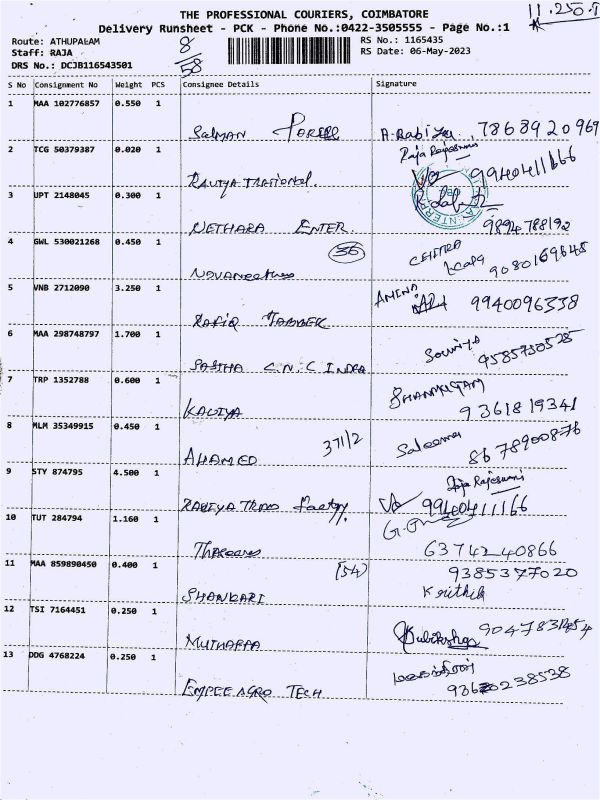 11.250.1
THE PROFESSIONAL COURIERS, COIMBATORE
Delivery Runsheet - PCK - Phone No.:0422-3505555 - Page No.:1
Route: ATHUPALAM 8/58 RS No.: 1165435
Staff: RAJA RS Date: 06-May-2023
DRS No.: DCJB116543501
S No Consignment No Weight PCS Consignee Details Signature
1 MAA 102776857 0.550 1
Salman A.Rabiya. 7868920969
2 TCG 50379387 0.020 1 Raja Rajeswari
9940411166
3 UPT 2148045 0.300 1
NETHARA ENTER. 9894788192
4 GWL 530021268 0.450 1 36 CHITRA
9080169645
5 VNB 2712090 3.250 1 AMINA
RAFIQ 9940096338
6 MAA 298748797 1.700 1
SASTHA C.N.C INDRA 9585730525
7 TRP 1352788 0.600 1
KALIYA 9361819341
8 MLM 35349915 0.450 1 371/2 Saleema
AHAMED 8678900876
9 STY 874795 4.500 1 Raja Rajeswari
RABIYA TRANS Factory. 9940411166
10 TUT 284794 1.160 1
6374240866
11 MAA 859890450 0.400 1 (54) 9385377020
SHANKARI Krithik
12 TSI 7164451 0.250 1
MUTHAPPA
13 DDG 4768224 0.250 1
EMPEE AGRO TECH